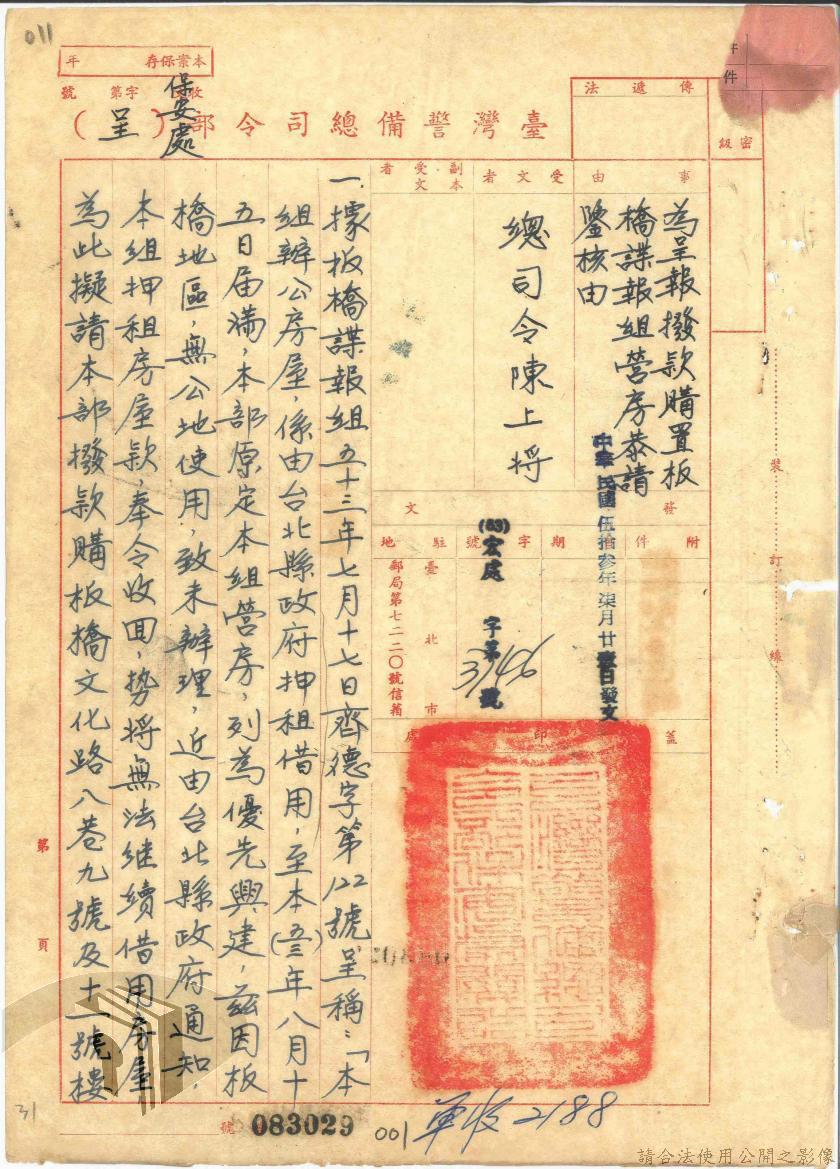 011
本案保存 年
收 字第 號
臺灣警備總司令部(呈)
保安處
件
密級
傳遞法
事由
為呈報撥款購置板
橋諜報組營房恭請
鑒核由
受文者
總司令陳上將
副本受文者
發文
附件
日期
中華民國伍拾叁年柒月廿壹日發文
字號
(53)宏處字第 號
3456
駐地
臺北市
郵局第七二二〇號信箱
蓋印處
裝訂線
一、據板橋諜報組五十三年七月十七日齊德字第122號呈稱:「本
組辦公房屋,係由台北縣政府押租借用,至本(五三)年八月十
五日屆滿,本部原定本組營房,列為優先興建,茲因板
橋地區,無公地使用,致未辦理,近由台北縣政府通知,
本組押租房屋款,奉令收回,勢將無法継續借用房屋
為此擬請本部撥款購板橋文化路八巷九號及十一號樓
第 頁
31
號 083029
001
軍收2188
請合法使用公開之影像